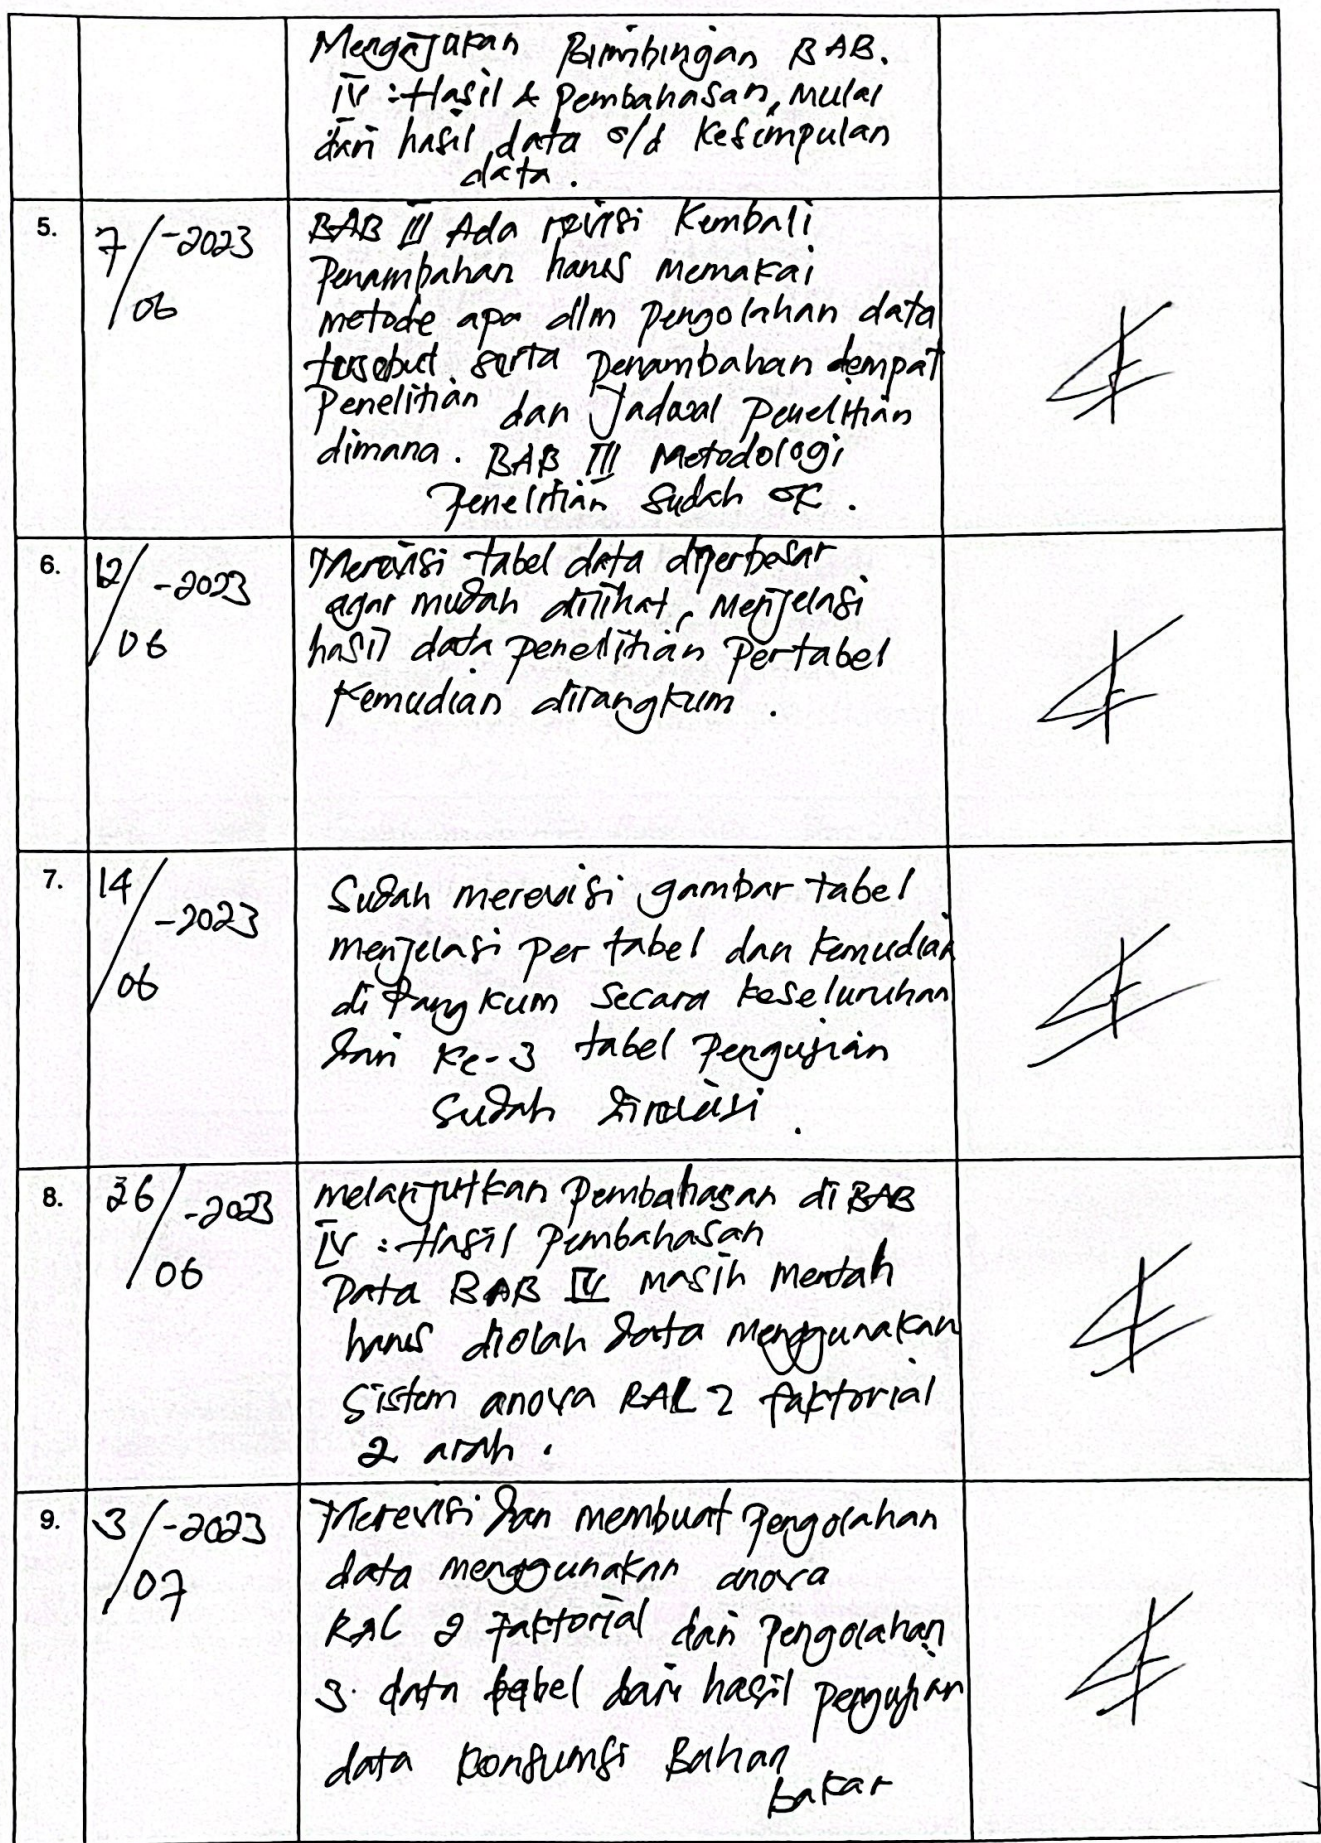 Mengajukan Bimbingan BAB.
IV : Hasil & Pembahasan, Mulai
dari hasil data s/d Kesimpulan
data.
5. 7/06-2023
BAB III Ada revisi Kembali
Penambahan harus memakai
metode apa dlm pengolahan data
tersebut serta penambahan tempat
Penelitian dan Jadwal Penelitian
dimana. BAB III Metodologi
Penelitian Sudah OK.
6. 12/06-2023
Merevisi tabel data diperbesar
agar mudah dilihat, Menjelasi
hasil data penelitian Pertabel
Kemudian dirangkum.
7. 14/06-2023
Sudah merevisi gambar tabel
menjelasi per tabel dan kemudian
di Rangkum Secara keseluruhan
dari Ke-3 tabel Pengujian
Sudah direvisi.
8. 26/06-2023
melanjutkan Pembahasan di BAB
IV : Hasil Pembahasan
Data BAB IV masih mentah
harus diolah data Menggunakan
Sistem anova RAL 2 faktorial
2 arah.
9. 3/07-2023
Merevisi dan membuat Pengolahan
data menggunakan anova
RAL 2 Faktorial dari Pengolahan
3. data tabel dari hasil pengujian
data Konsumsi Bahan
bakar